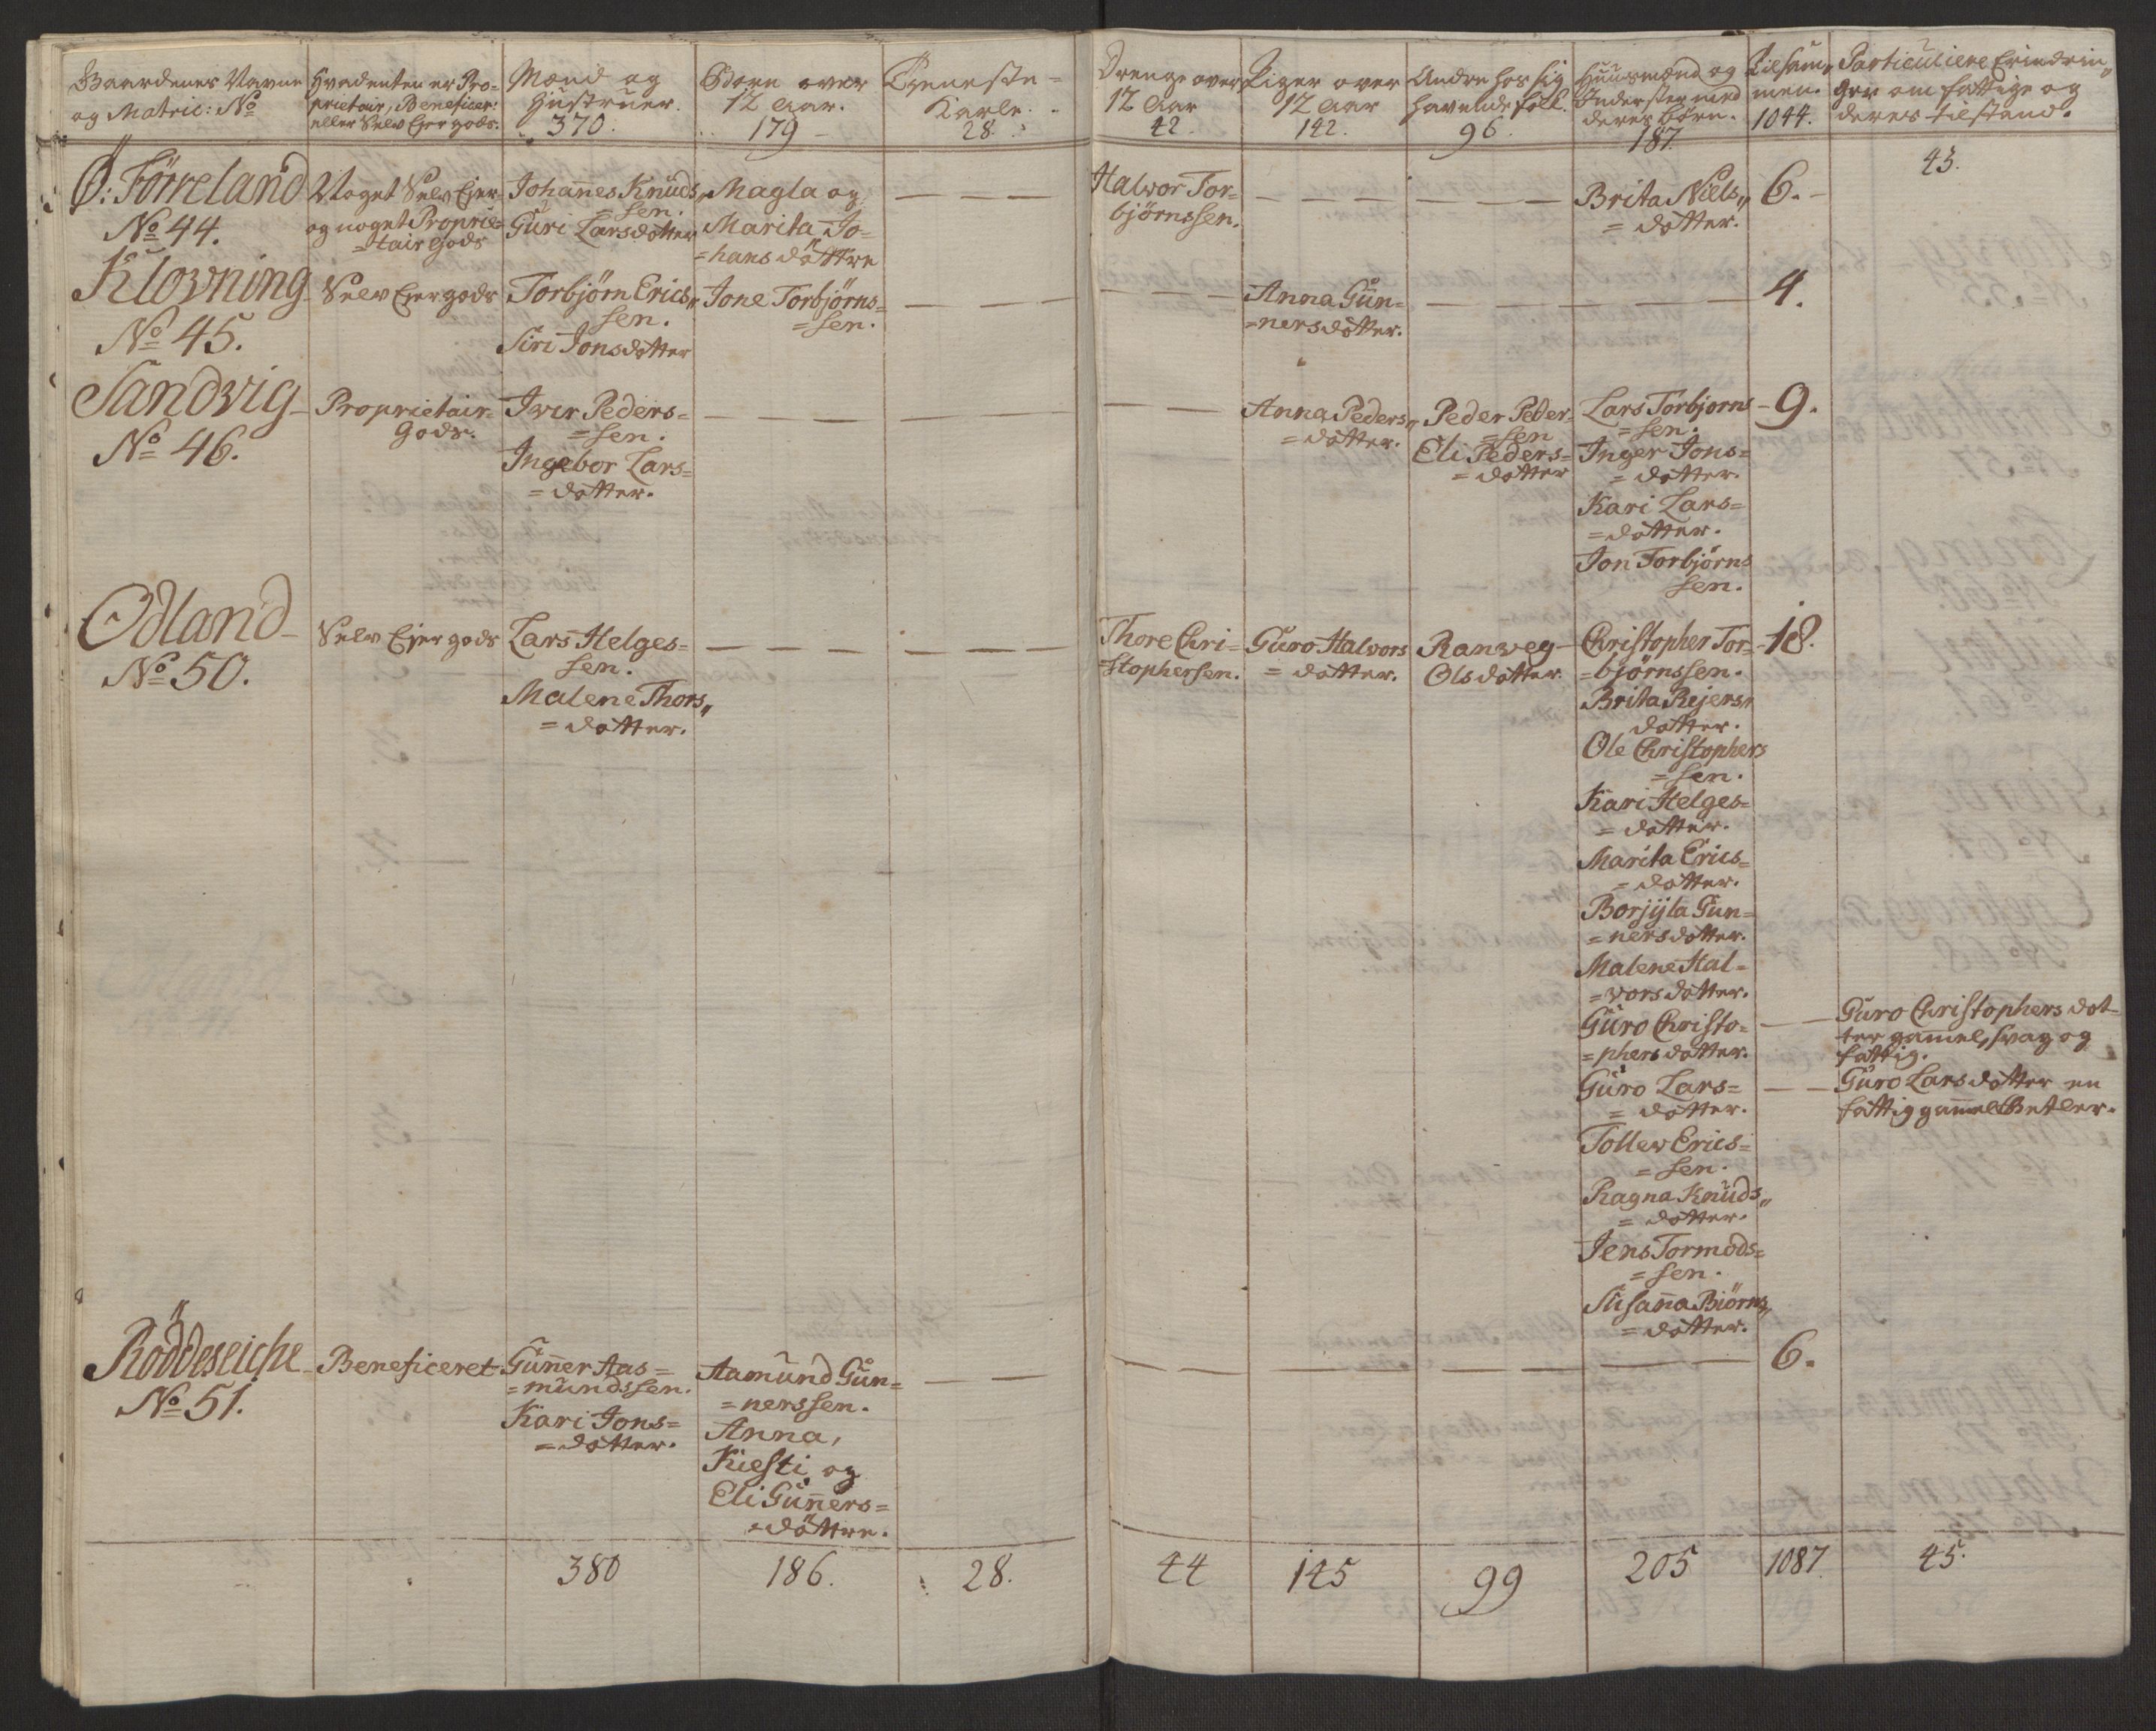 Gaardenes Navne
og Matric: No
Hvadenten er Pro-
prietair, Beneficer:
eller Selv Ejer gods.
Mænd og
Hustruer.
370.
Börn over
12 Aar.
179
Tieneste=
Karle.
28.
Drenge over
12 Aar
42
Piger over
12 Aar
142.
Andre hos sig
havende folk.
96
Huusmænd og
Inderster med
deres börn.
187.
Tilsam„
men.
1044.
Particuliere Erindrin„
ger om fattige og
deres tilstand.
43.
Ö: Förreland
No 44.
Noget Selv Ejer-
og noget Proprie=
=tair Gods
Johannes Knuds„
=sen.
Guri Larsdotter
Magla og
Marita Jo=
=hans döttre
Halvor Tor=
björnssen.
Brita Niels„
=dotter.
6.
Klovning
No 45.
Selv Ejer gods
Torbjörn Erics„
sen.
Siri Jonsdotter
Jone Torbjörns=
=sen.
Anna Gun=
=nersdotter.
4.
Sandvig
No 46.
Proprietair=
Gods.
Iver Peders=
=sen.
Ingebor Lars=
=dotter.
Anna Peders„
=dotter.
Peder Peder=
=sen
Eli Peders=
=dotter
Lars Torbjorns
=sen.
Inger Jons=
=dotter.
Kari Lars=
=dotter.
Jon Torbjörns
sen.
9.
Odland
No 50.
Selv Ejer gods
Lars Helges=
sen.
Malene Thors„
=dotter.
Thore Chri=
=stophersen.
Guro Halvors
=dotter.
Ranveg
Olsdotter
Christopher Tor=
=björnssen.
Brita Rejers„
dotter.
Ole Christophers
=sen.
Kari Helges=
=dotter.
Marita Erics=
=dotter.
Borjyla Gun=
=nersdotter.
Malene Hal=
=vorsdotter.
Guro Christo=
=phersdotter.
Guro Lars=
=dotter.
Tollev Erics=
=sen.
Ragna Knuds„
=dotter.
Jens Tormods=
=sen.
Susanna Biörns„
=dotter.
18.
Guro Christophers dot-
ter gammel, svag og
fattig.
Guro Larsdotter en
fattig gammel Betler.
Röddeseiche
No 51.
Beneficeret
Gunner Aas=
=mundssen.
Kari Jons=
=dotter.
Aamund Gun=
=nerssen.
Anna,
Kiesti og
Eli Gunners=
=döttre.
6.
380
186.
28.
44
145
99
205
1087.
45.